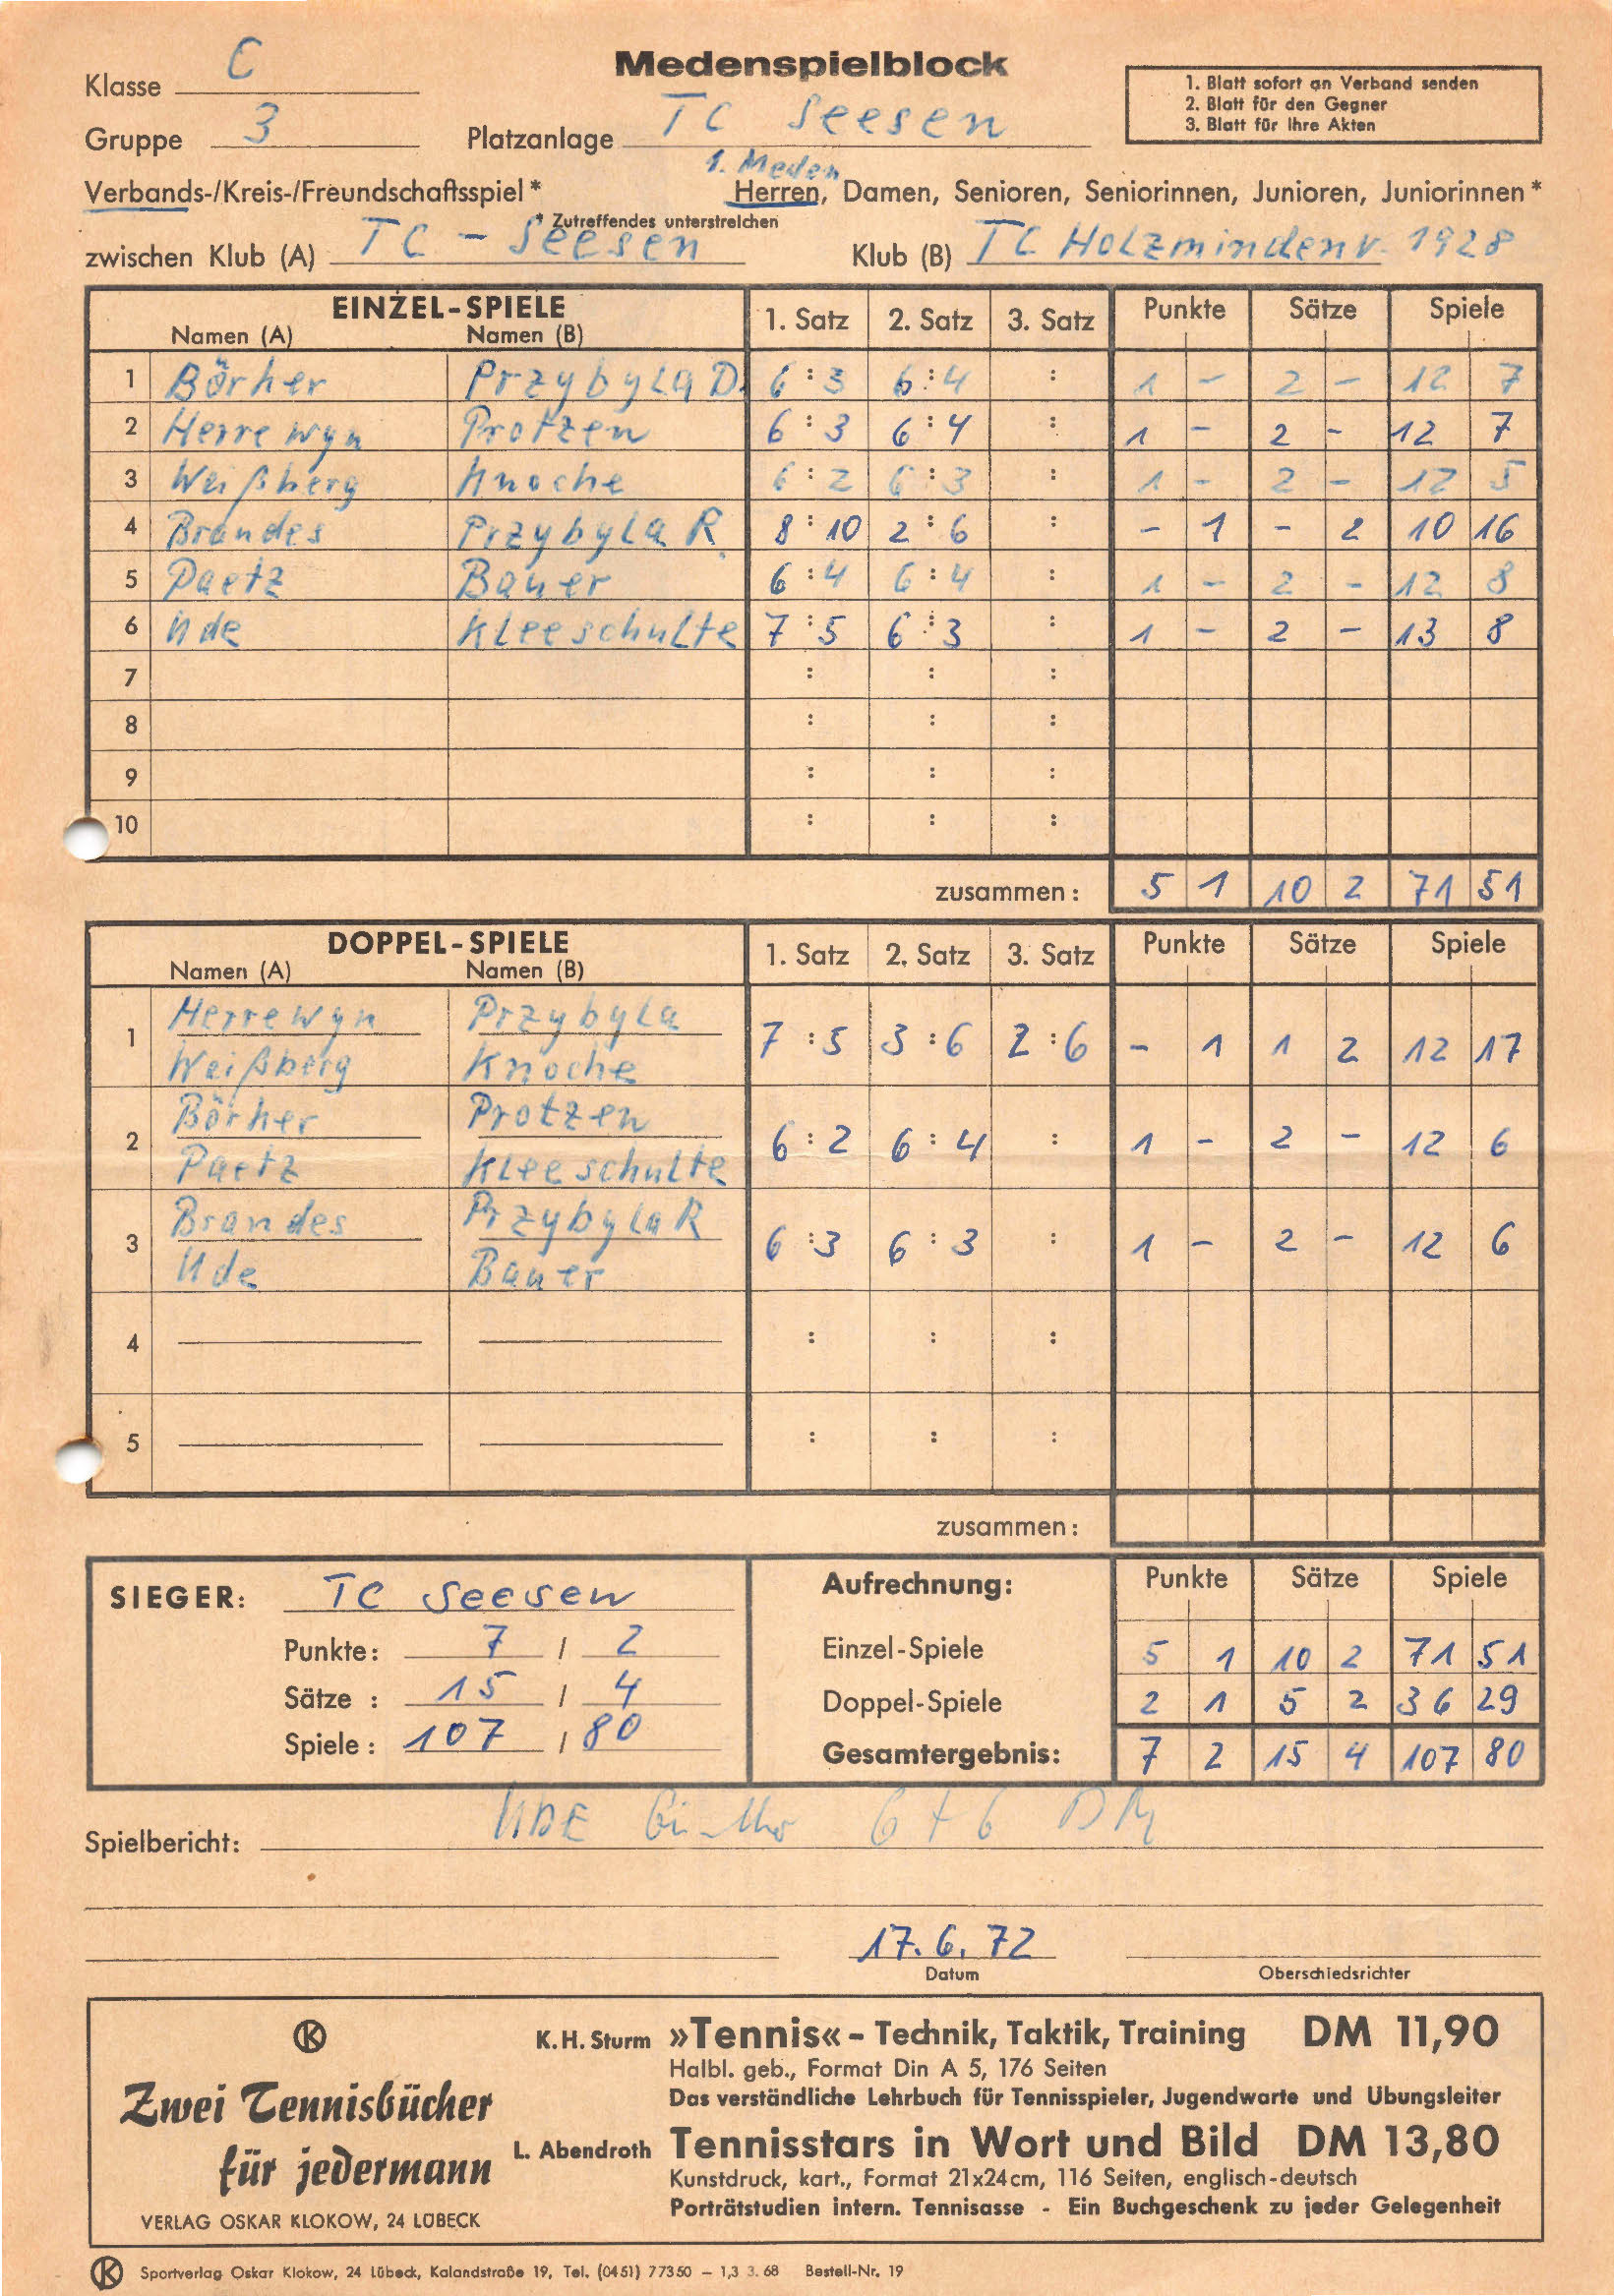 Klasse C
Medenspielblock
1. Blatt sofort an Verband senden
2. Blatt für den Gegner
3. Blatt für Ihre Akten
Gruppe 3 Platzanlage TC Seesen
1. Meden
Verbands-/Kreis-/Freundschaftsspiel* Herren, Damen, Senioren, Seniorinnen, Junioren, Juniorinnen*
* Zutreffendes unterstreichen
zwischen Klub (A) TC - Seesen Klub (B) TC Holzminden v. 1928
EINZEL-SPIELE 1. Satz 2. Satz 3. Satz Punkte Sätze Spiele
Namen (A) Namen (B)
1 Börher Przybyla D. 6:3 6:4 : 1 - 2 - 12 7
2 Herrewyn Protzen 6:3 6:4 : 1 - 2 - 12 7
3 Weißberg Knoche 6:2 6:3 : 1 - 2 - 12 5
4 Brandes Przybyla R. 8:10 2:6 : - 1 - 2 10 16
5 Paetz Bauer 6:4 6:4 : 1 - 2 - 12 8
6 Ude Kleeschulte 7:5 6:3 : 1 - 2 - 13 8
7 : : :
8 : : :
9 : : :
10 : : :
zusammen: 5 1 10 2 71 51
DOPPEL-SPIELE 1. Satz 2. Satz 3. Satz Punkte Sätze Spiele
Namen (A) Namen (B)
Herrewyn Przybyla
1 7:5 3:6 2:6 - 1 1 2 12 17
Weißberg Knoche
Börher Protzen
2 6:2 6:4 : 1 - 2 - 12 6
Paetz Kleeschulte
Brandes Przybyla R
3 6:3 6:3 : 1 - 2 - 12 6
Ude Bauer
4 : : :
5 : : :
zusammen:
SIEGER: TC Seesen Aufrechnung: Punkte Sätze Spiele
Punkte: 7 / 2 Einzel-Spiele 5 1 10 2 71 51
Sätze : 15 / 4 Doppel-Spiele 2 1 5 2 36 29
Spiele : 107 / 80 Gesamtergebnis: 7 2 15 4 107 80
Spielbericht: UDE 6+6 DM
17.6.72
Datum Oberschiedsrichter
K
Zwei Tennisbücher
für jedermann
VERLAG OSKAR KLOKOW, 24 LÜBECK
K. H. Sturm »Tennis« - Technik, Taktik, Training DM 11,90
Halbl. geb., Format Din A 5, 176 Seiten
Das verständliche Lehrbuch für Tennisspieler, Jugendwarte und Übungsleiter
L. Abendroth Tennisstars in Wort und Bild DM 13,80
Kunstdruck, kart., Format 21x24cm, 116 Seiten, englisch-deutsch
Porträtstudien intern. Tennisasse - Ein Buchgeschenk zu jeder Gelegenheit
K Sportverlag Oskar Klokow, 24 Lübeck, Kalandstraße 19, Tel. (0451) 77350 – 1,3 3. 68 Bestell-Nr. 19